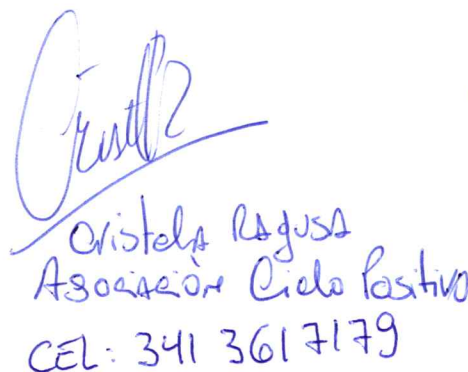 Cristela Ragusa
Asociación Ciclo Positivo
CEL: 341 3617179